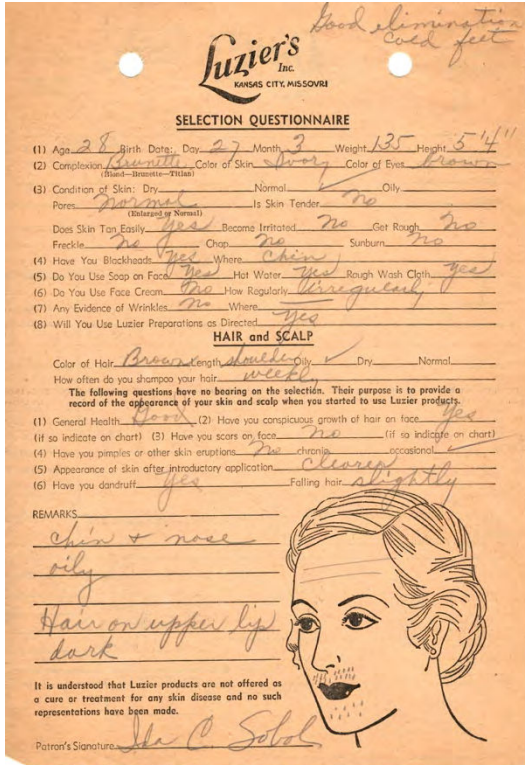 Good elimination
cold feet
Luzier's
Inc.
KANSAS CITY, MISSOURI
SELECTION QUESTIONNAIRE
(1) Age 28 Birth Date: Day 27 Month 3 Weight 135 Height 5'4"
(2) Complexion Brunette Color of Skin Ivory Color of Eyes brown
(Blond—Brunette—Titian)
(3) Condition of Skin: Dry Normal ✓ Oily
Pores normal Is Skin Tender no
(Enlarged or Normal)
Does Skin Tan Easily yes Become Irritated no Get Rough no
Freckle no Chap no Sunburn no
(4) Have You Blackheads yes Where chin
(5) Do You Use Soap on Face yes Hot Water yes Rough Wash Cloth yes
(6) Do You Use Face Cream no How Regularly irregularly
(7) Any Evidence of Wrinkles no Where —
(8) Will You Use Luzier Preparations as Directed yes
HAIR and SCALP
Color of Hair Brown Length shoulder Oily ✓ Dry Normal
How often do you shampoo your hair weekly
The following questions have no bearing on the selection. Their purpose is to provide a
record of the appearance of your skin and scalp when you started to use Luzier products.
(1) General Health Good (2) Have you conspicuous growth of hair on face yes
(if so indicate on chart) (3) Have you scars on face no (if so indicate on chart)
(4) Have you pimples or other skin eruptions no chronic occasional ✓
(5) Appearance of skin after introductory application clearer
(6) Have you dandruff yes Falling hair slightly
REMARKS
chin + nose
oily
Hair on upper lip
dark
It is understood that Luzier products are not offered as
a cure or treatment for any skin disease and no such
representations have been made.
Patron's Signature Ida C. Sobol